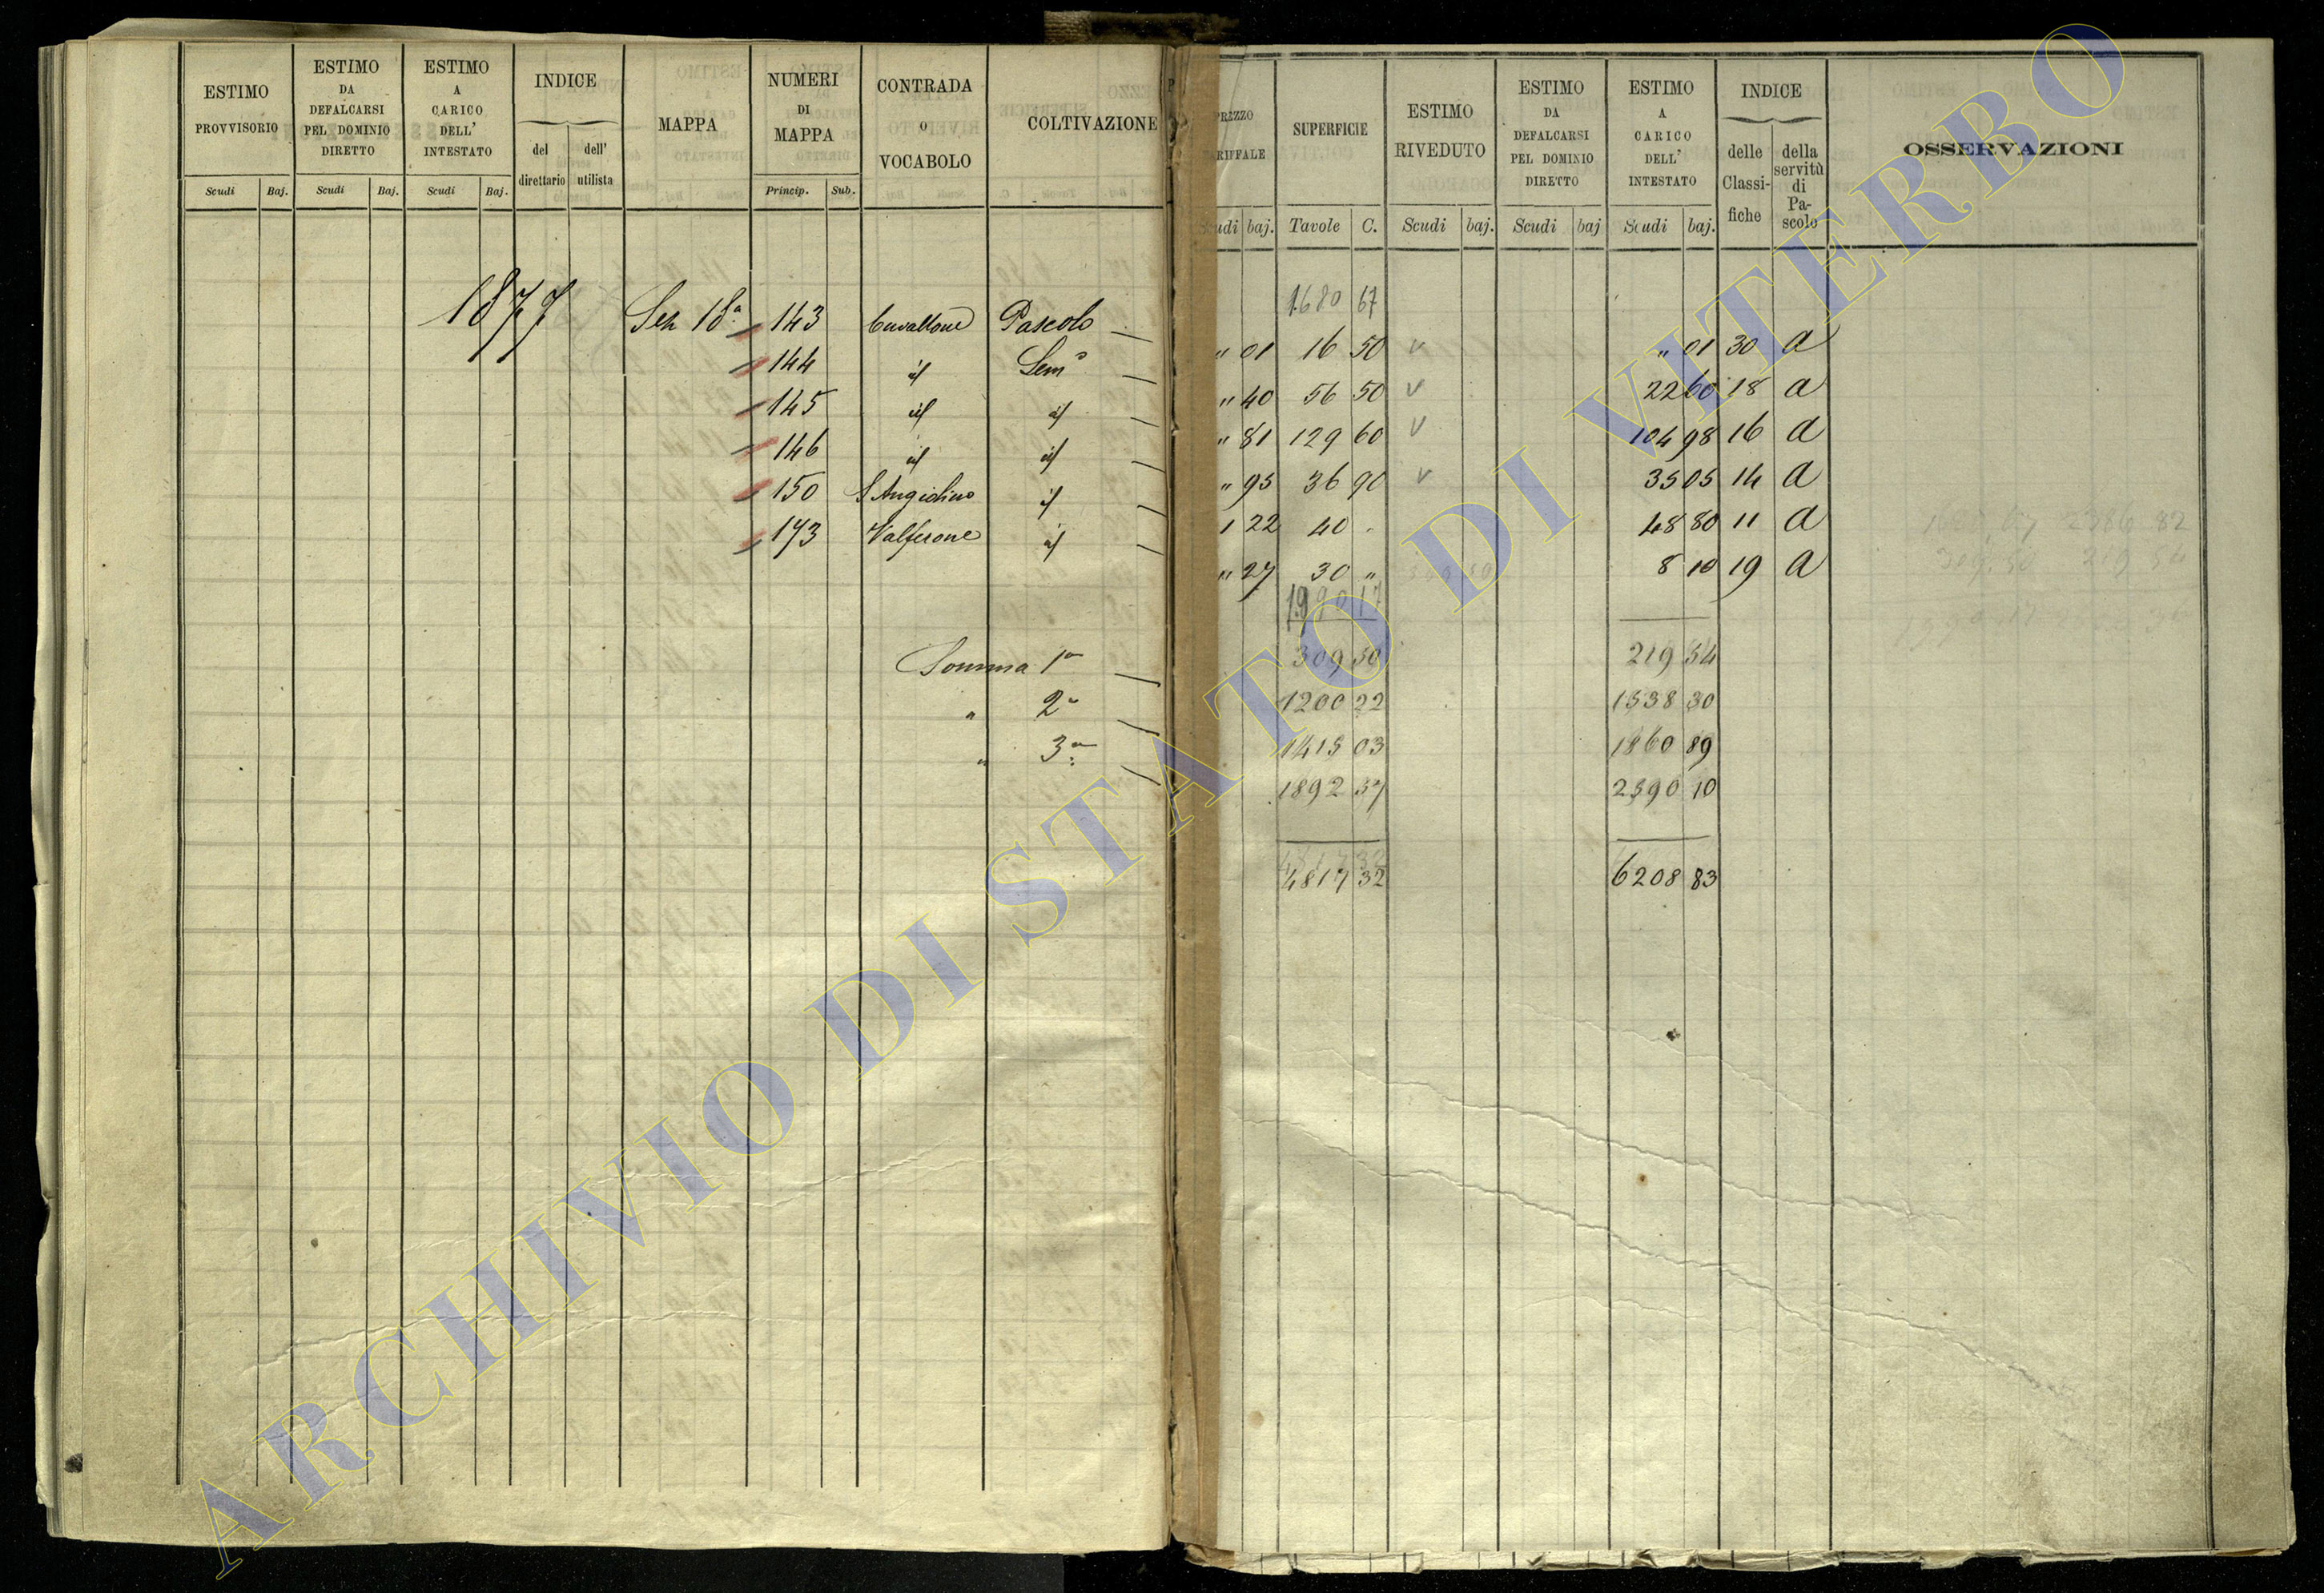 ESTIMO PROVVISORIO Scudi Baj.
ESTIMO DA DEFALCARSI PEL DOMINIO DIRETTO Scudi Baj.
ESTIMO A CARICO DELL' INTESTATO Scudi Baj.
INDICE del direttario dell' utilista
MAPPA
NUMERI DI MAPPA Princip. Sub.
CONTRADA O VOCABOLO
COLTIVAZIONE
1877 Sez 18.a 143 Pascolo
144 id Sem.o
145 id id
146 id id
150 S Angiolino id
173 Valferone id
Somma 1a
" 2a
" 3a
PREZZO TARIFFALE Scudi baj.
SUPERFICIE Tavole C.
ESTIMO RIVEDUTO Scudi baj.
ESTIMO DA DEFALCARSI PEL DOMINIO DIRETTO Scudi baj
ESTIMO A CARICO DELL' INTESTATO Scudi baj.
INDICE delle Classifiche della servitù di Pascolo
OSSERVAZIONI
1680 67
" 01 16 50 v " 01 30 a
" 40 56 50 v 22 60 18 a
" 81 129 60 v 104 98 16 a
" 95 36 90 v 35 05 14 a
1 22 40 . 48 80 11 a
" 27 30 " 8 10 19 a
1990 17
309 50 219 54
1200 22 1538 30
1415 03 1860 89
1892 57 2590 10
4817 32
4817 32 6208 83
ARCHIVIO DI STATO DI VITERBO